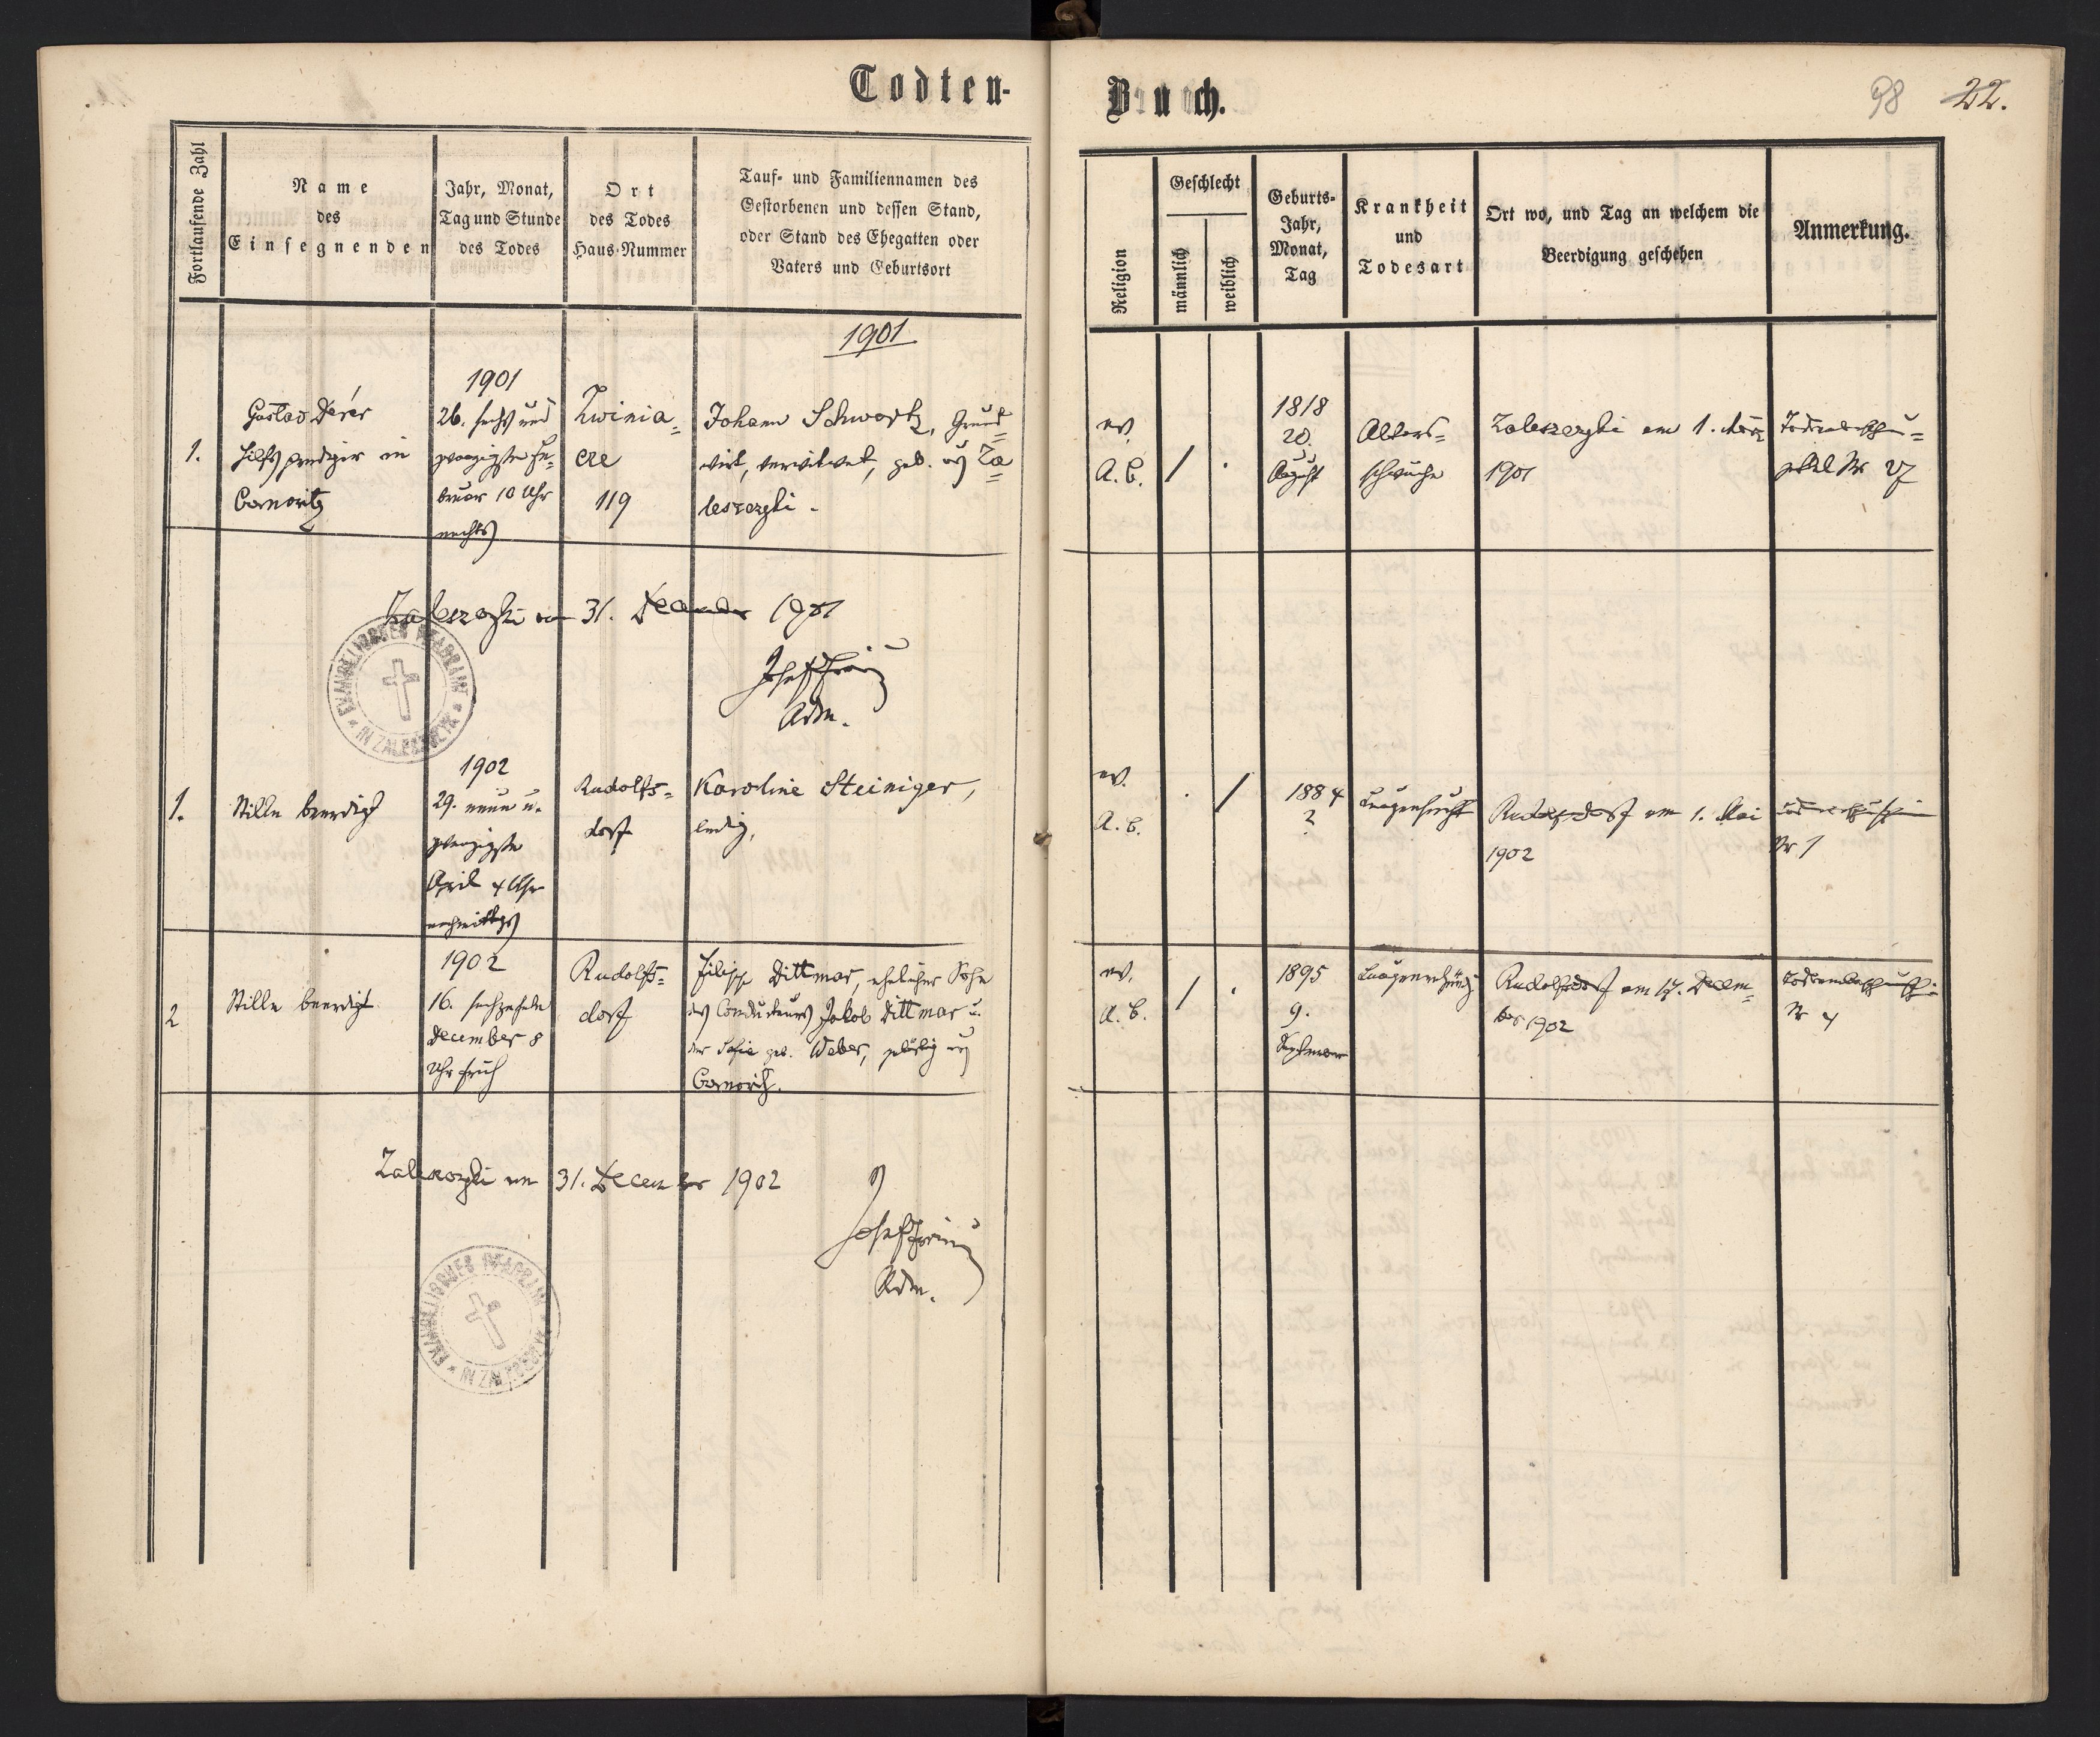 Todten-
Buch.
98 22.
Fortlaufende Zahl
Name
des
Einsegnenden
Jahr, Monat,
Tag und Stunde
des Todes
Ort
des Todes
Haus-Nummer
Tauf- und Familiennamen des
Gestorbenen und dessen Stand,
oder Stand des Ehegatten oder
Vaters und Geburtsort
Religion
Geschlecht
männlich
weiblich
Geburts-
Jahr,
Monat,
Tag
Krankheit
und
Todesart
Ort wo, und Tag an welchem die
Beerdigung geschehen
Anmerkung.
1901
1.
Gustav Dérer
Hilfsprediger in
1901
26. sechs und
zwanzigsten Fe-
bruar 10 Uhr
nachts
Zwinia=
cze
119
Johann Schwartz, Grund=
wirt, verwitwet, geb. aus Za=
leszczyki.
ev.
A. B.
/
.
1818
20.
August
Alters=
schwäche
Zaleszczyki am 1. März
1901
Todtenbeschau=
zettel Nr 27
Zaleszczyki am 31. December 1901
Josef
Adm.
EVANGELISCHES PFARRAMT
* IN ZALESZCZYKI *
1.
Stille beerdigt
1902
29. neun u.
zwanzigsten
April 4 Uhr
nachmittags
Rudolfs=
dorf
Karoline Steiniger,
ledig,
ev.
A. B.
.
/
1884
?
Lungensucht
Rudolfsdorf am 1. Mai
1902
Nr 1
2
Stille beerdigt
1902
16. sechzehnten
December 8
Uhr früh
Rudolfs=
dorf
Filipp Dittmar, ehelicher Sohn
des Conducteurs Jakob Dittmar u.
der Sofie geb. Weber, gebürtig aus
ev.
A. B.
/
.
1895
9.
September
Rudolfsdorf am 17. Decem=
ber 1902
Nr 4
Zaleszczyki am 31. December 1902
Josef
Adm.
EVANGELISCHES PFARRAMT
* IN ZALESZCZYKI *